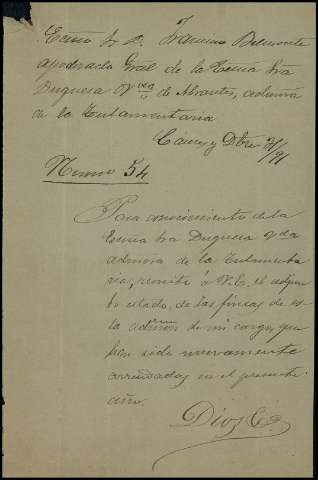 Excmo Sr D. Francisco Belmonte
apoderado Gral de la Excma Sra
Duquesa Vda de Abrantes, admora
de la Testamentaria
Cáceres y Dbre 31/91
Numo 54
Para conocimiento de la
Excma Sra Duquesa Vda
admora de la Testamenta
ria, remito á V.E. el adjun
to estado, de las fincas de es
ta admon de mi cargo, que
han sido nuevamente
arrendadas en el presente
año.
Dios &